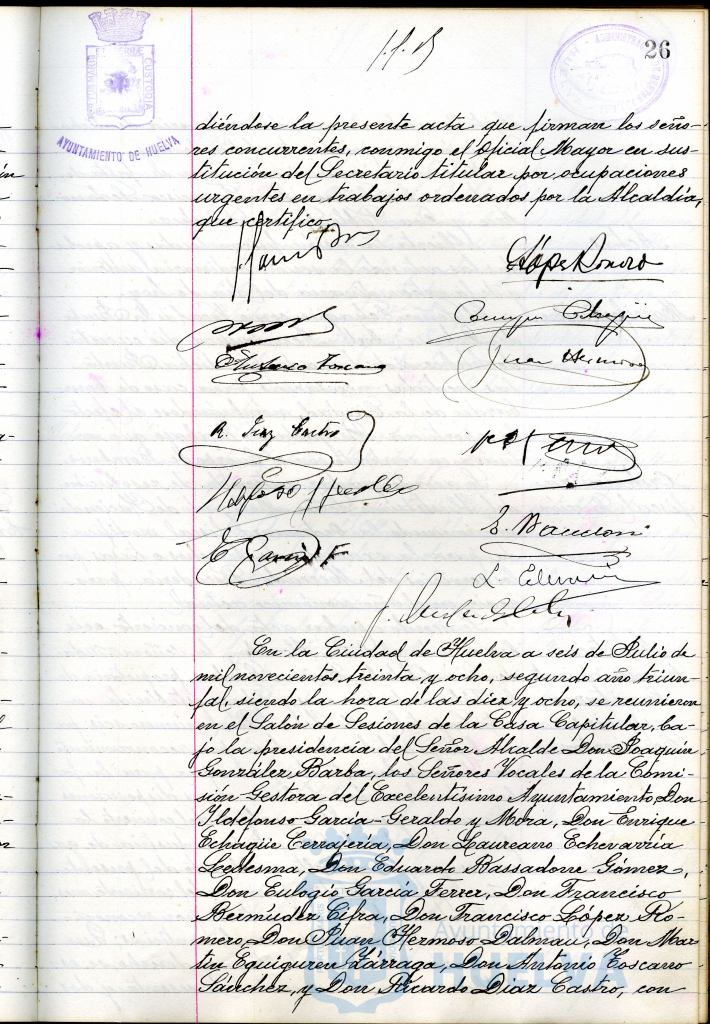 26
AYUNTAMIENTO DE HUELVA
diéndose la presente acta que firman los seño-
res concurrentes, conmigo el Oficial Mayor en sus-
titución del Secretario titular por ocupaciones
urgentes en trabajos ordenados por la Alcaldía,
que certifico.
López Romero
Juan Hermoso
R. Diaz Castro
E. García F
En la Ciudad de Huelva a seis de Julio de
mil novecientos treinta y ocho, segundo año triun-
fal, siendo la hora de las diez y ocho, se reunieron
en el Salón de Sesiones de la Casa Capitular, ba-
jo la presidencia del Señor Alcalde Don Joaquín
González Barba, los Señores Vocales de la Comi-
sión Gestora del Excelentísimo Ayuntamiento, Don
Ildefonso García-Geraldo y Mora, Don Enrique
Echagüe Cerrajería, Don Laureano Echevarría
Ledesma, Don Eduardo Bassadone Gómez,
Don Eulogio García Ferrer, Don Francisco
Bermúdez Cifra, Don Francisco López Ro-
mero, Don Juan Hermoso Dalmau, Don Mar-
tín Eguiguren Zárraga, Don Antonio Toscano
Sánchez, y Don Ricardo Diaz Castro, con
Ayuntamiento de
HUELVA